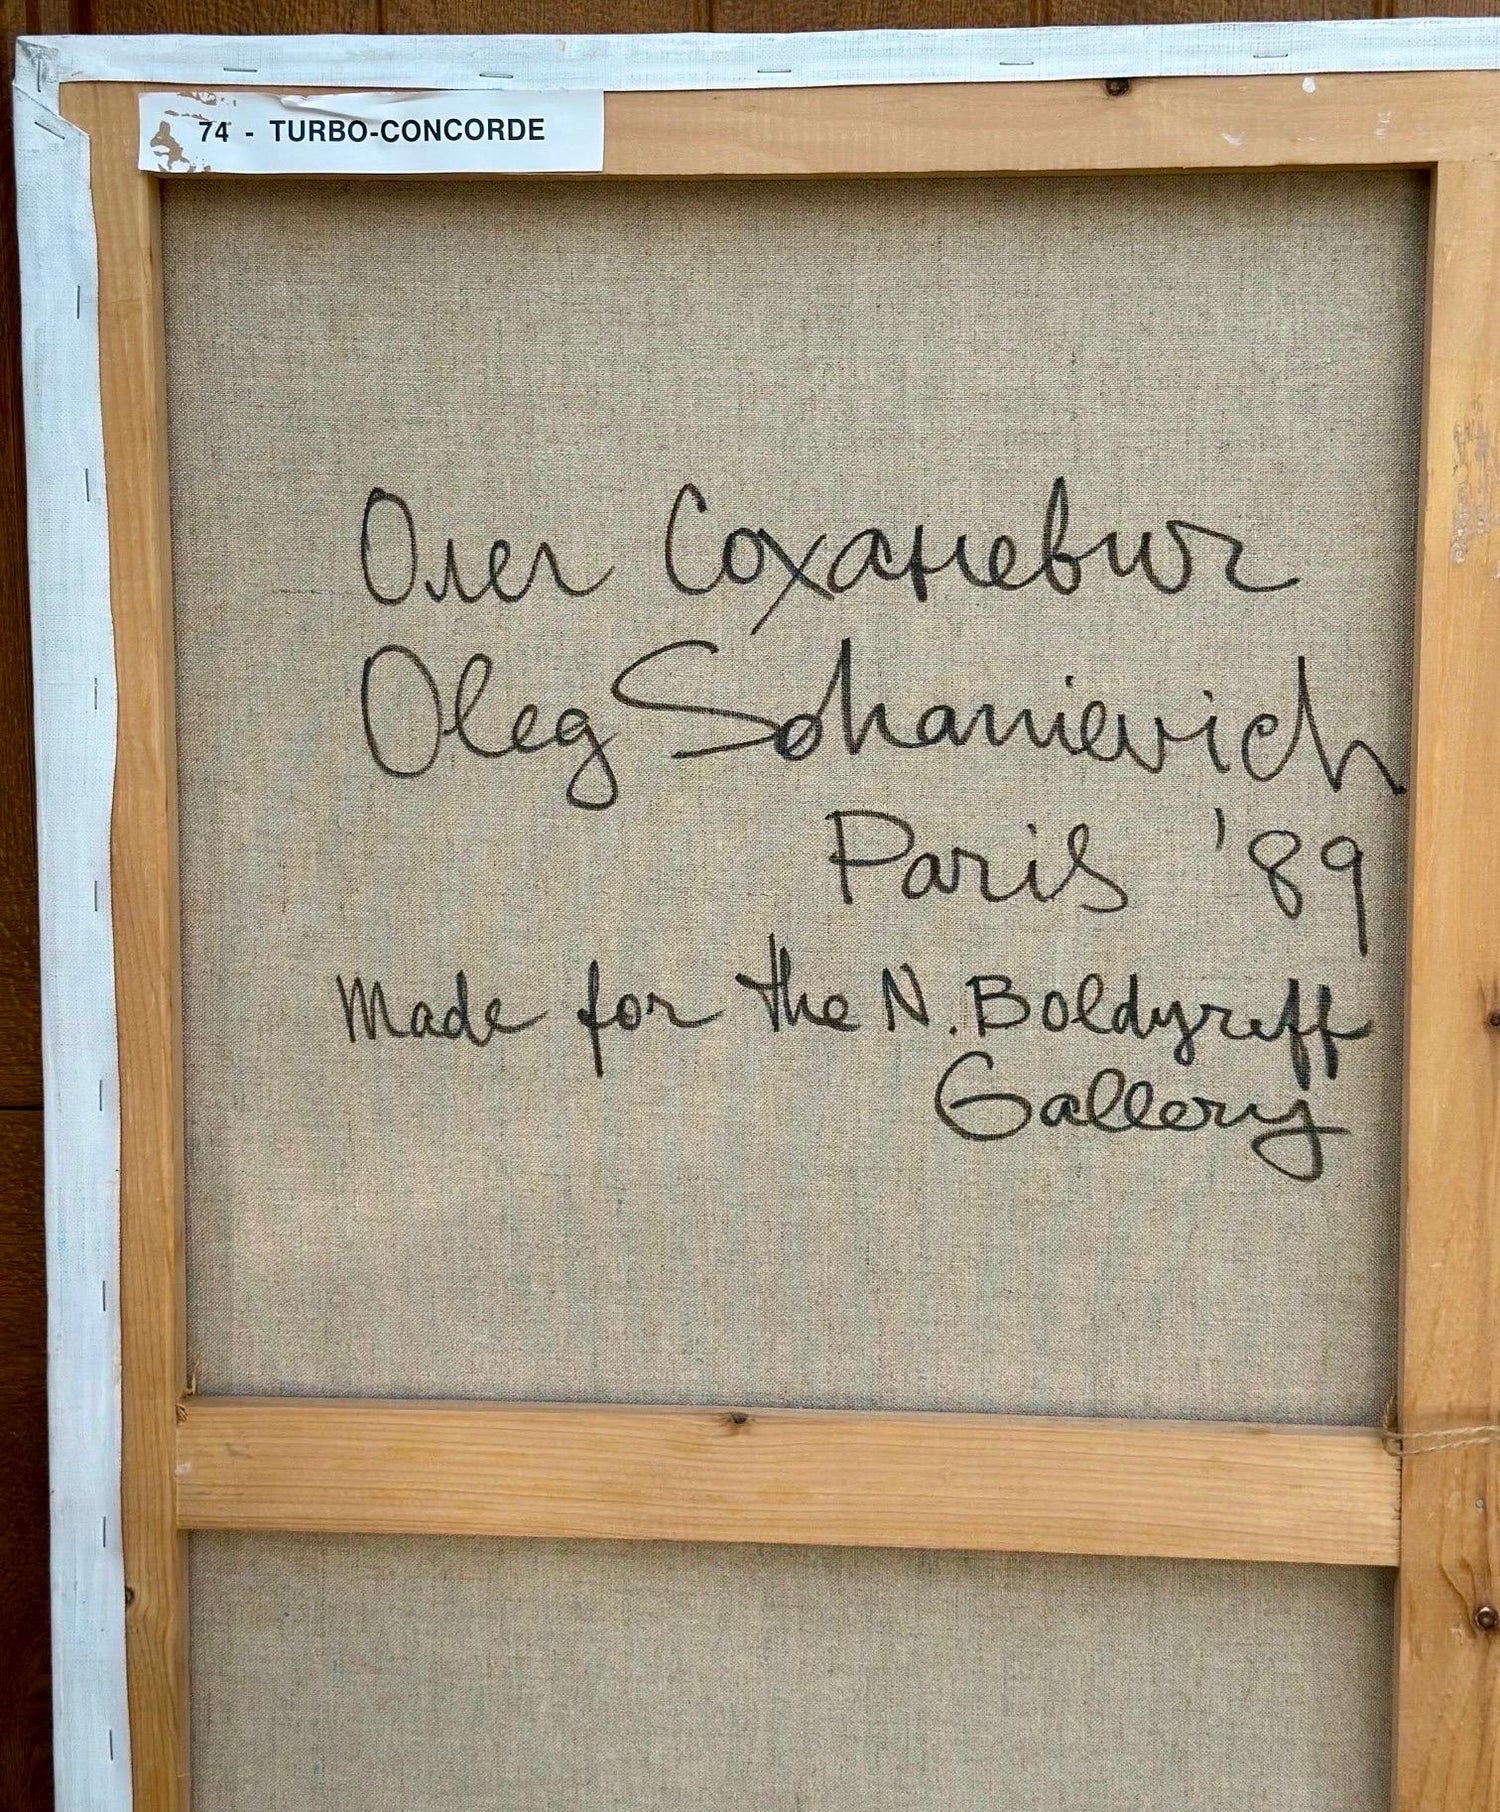 74 - TURBO-CONCORDE
Олег Соханевич
Oleg Sohanievich
Paris '89
Made for the N. Boldyreff
Gallery